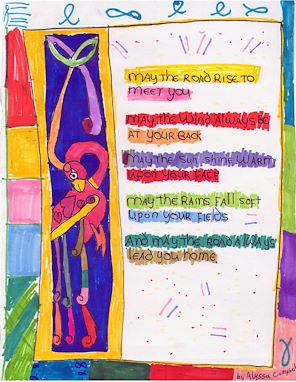 MAY THE ROAD RISE TO
MEET YOU
MAY THE WIND ALWAYS BE
AT YOUR BACK
MAY THE SUN SHINE WARM
UPON YOUR FACE
MAY THE RAINS FALL SOFT
UPON YOUR FIELDS
AND MAY THE ROAD ALWAYS
LEAD YOU HOME
by Alyssa